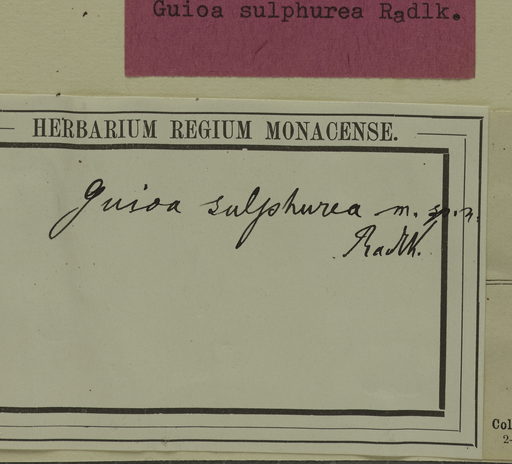 Guioa sulphurea Radlk.
HERBARIUM REGIUM MONACENSE.
Guioa sulphurea m. sp. n.
Radlk.
Col
2-